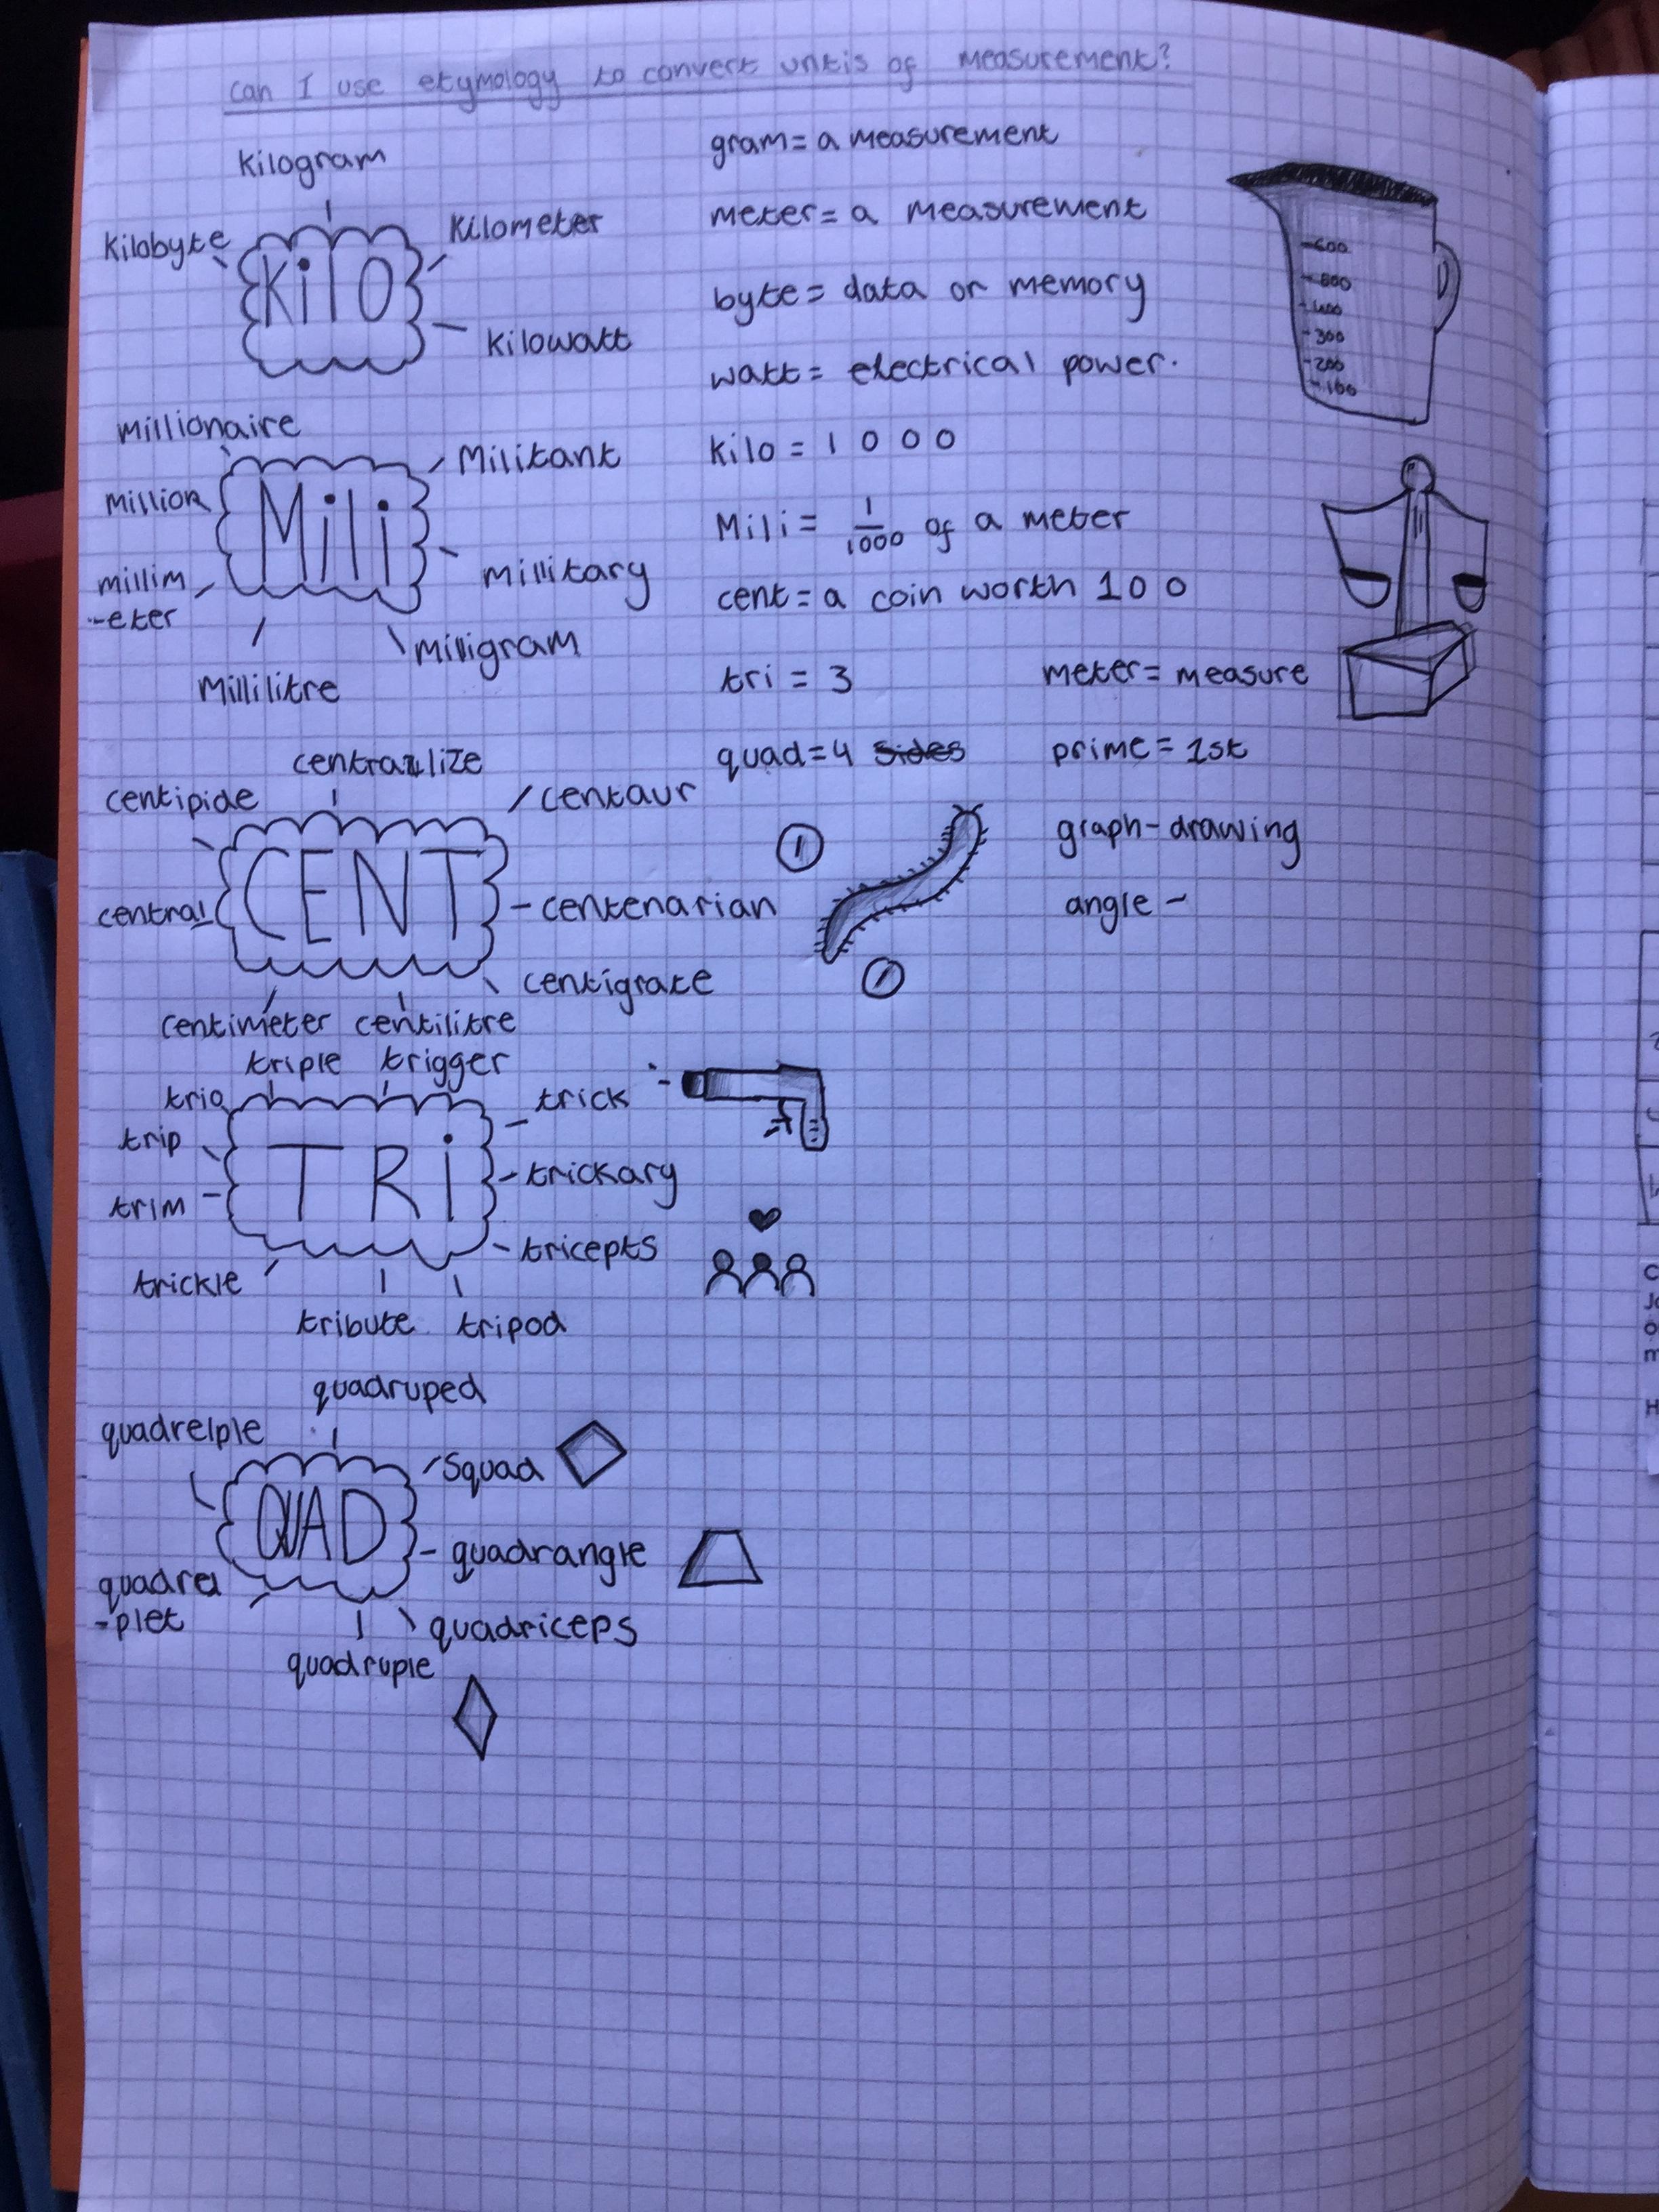 can I use etymology to convert untis of measurement?
Kilogram
Kilobyte
Kilometer
Kilo
kilowatt
Millionaire
Militant
Million
Mili
millim
-eter
millitary
Milligram
Millilitre
centralize
centipide
centaur
CENT
central
centenarian
centigrate
centimeter centilitre
triple trigger
trio
trick
trip
TRi
trickary
trim
tricepts
trickle
tribute tripod
quadruped
quadrelple
Squad
QUAD
quadrangle
-plet
quadriceps
quadruple
gram= a measurement
meter= a measurement
byte= data or memory
watt= electrical power.
kilo = 1 0 0 0
Mili = 1/1000 of a meter
cent = a coin worth 1 0 0
tri = 3
quad=4 sides
meter= measure
prime = 1st
graph-drawing
angle -
-600
-400
-300
-200
-100